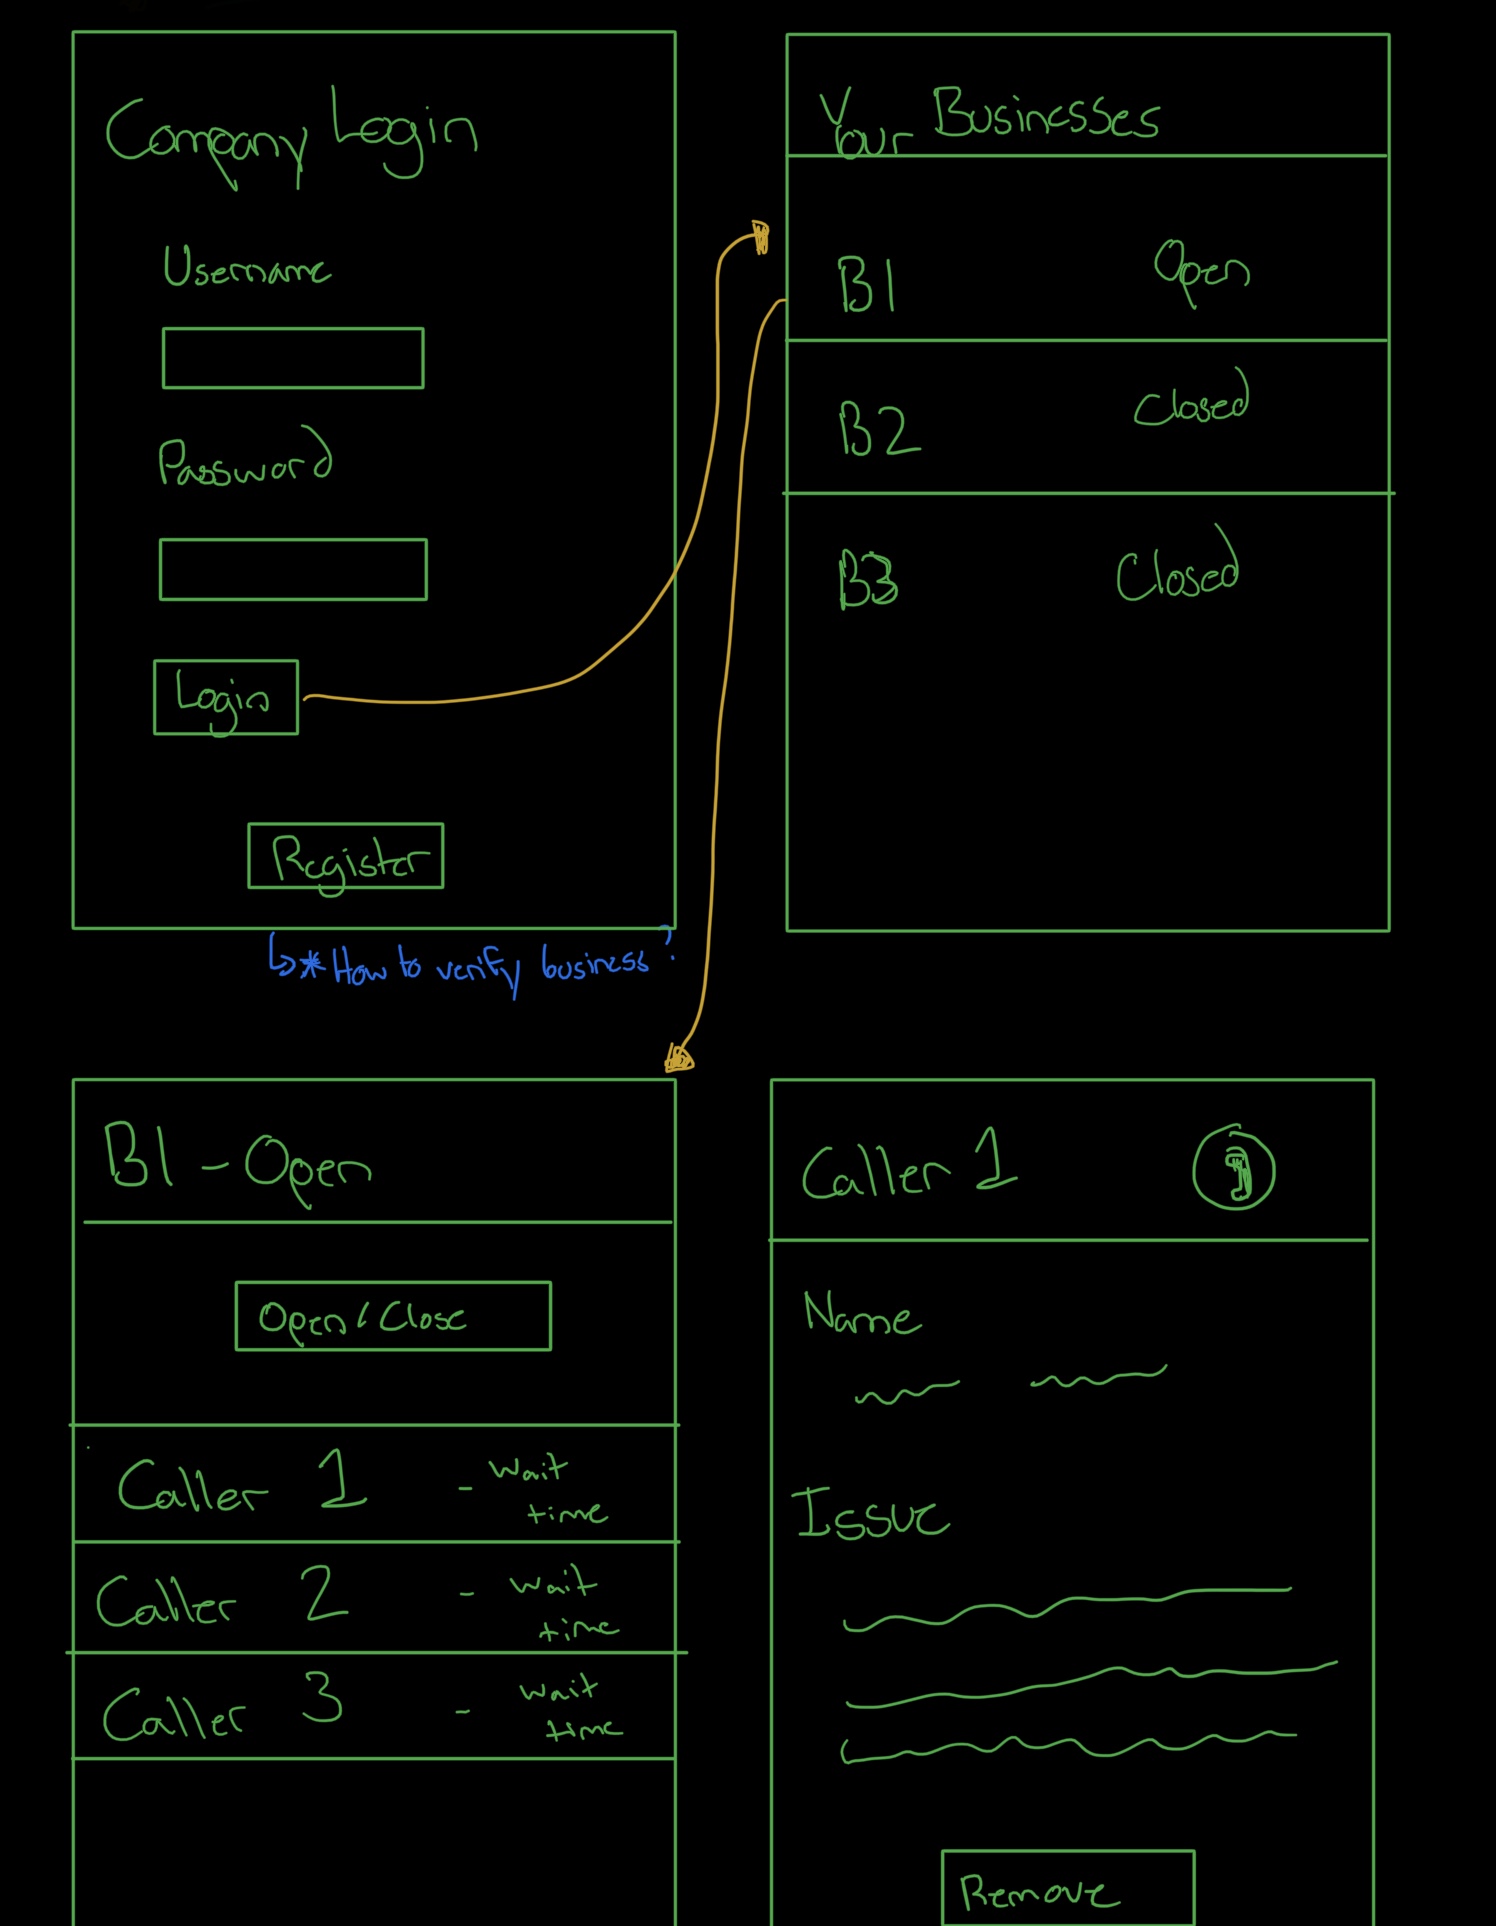 Company Login
Username
Password
Login
Register
* How to verify business?
Your Businesses
B1 Open
B2 Closed
B3 Closed
B1 - Open
Open/Close
Caller 1 - wait
time
Caller 2 - wait
time
Caller 3 - wait
time
Caller 1
Name
Issue
Remove